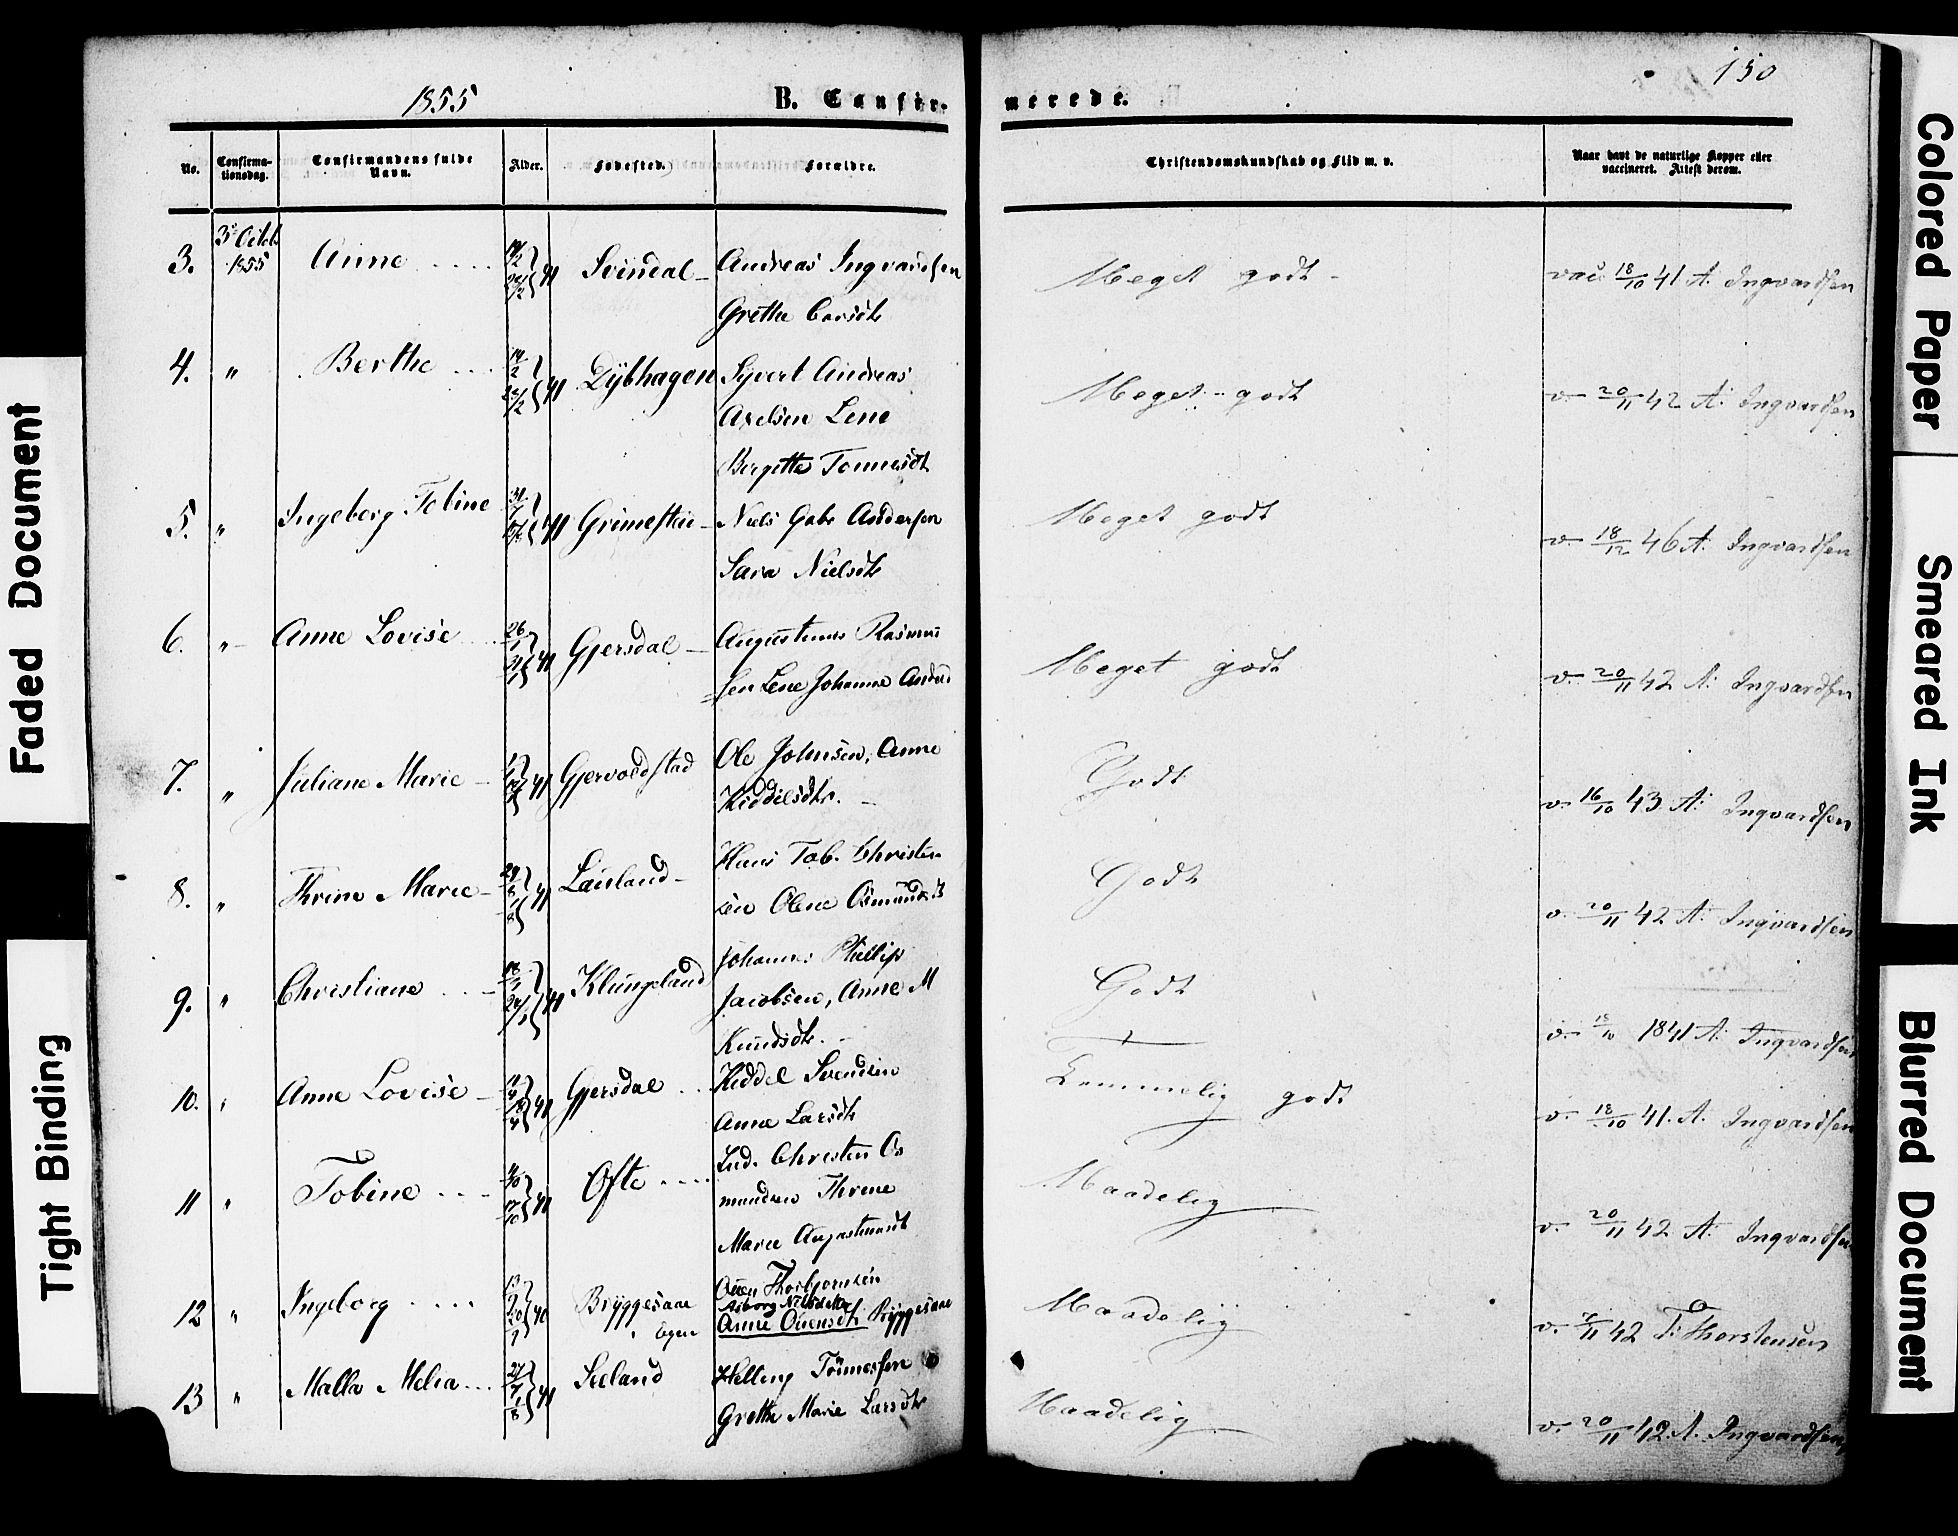 150
1855
B. Confir-
merede.
No.
Confirma-
tionsdag.
Confirmandens fulde
Navn.
Alder.
Fødested.
Forældre.
Christendomskundskab og Flid m. v.
Naar havt de naturlige Kopper eller
vaccineret. Attest derom.
3. 1855 Anne 41 Svindal Andreas Ingvardsen
Grethe Meget godt vac 18/10 41 A. Ingvardsen
4. " Berthe 41 Dybhagen Syvert Andreas
Axelsen Lene
Bergitte Tonnesdt Meget godt v. 20/11 42 A. Ingvardsen
5. " Ingeborg Tobine 41 Niels Gabr Andersen
Sara Nielsdt Meget godt v. 18/12 46 A. Ingvardsen
6. " Anne Lovise 41 Gjersdal Augustinus Rasmus
sen Lene Johanne Meget godt v. 20/11 42 A. Ingvardsen
7. " Juliane Marie 41 Gjervoldstad Ole Johnsen, Anne
Kiddelsdtr. Godt v. 16/10 43 A. Ingvardsen
8. " Thrine Marie 41 Lauland Hans Tob. Christen
sen Olene Godt v. 20/11 42 A. Ingvardsen
9. " Christiane 41 Klungeland Johannes Phillip
Jacobsen, Anne M
Knudsdt. Godt v. 18/10 1841 A. Ingvardsen
10. " Anne Lovise 41 Gjersdal Kiddel Svendsen
Anne Larsdt Temmelig godt v. 18/10 41. A. Ingvardsen
11 " Tobine 41 Ofte Christen Os
mundsen Thrine
Marie Maadelig v. 20/11 42 A. Ingvardsen
12 " Ingeborg 40 Bryggesaae
Egen Ouen Thorbjornsen
Asborg Nilsdatter
Anne Ouensdt Bryggesaae Maadelig 42 T. Thorstensen
13 " Malla Melia 41 Seeland Helling Tönnessen
Grethe Marie Larsdt Maadelig v. 20/11 42 A. Ingvardsen
Faded Document
Tight Binding
Colored Paper
Smeared Ink
Blurred Document